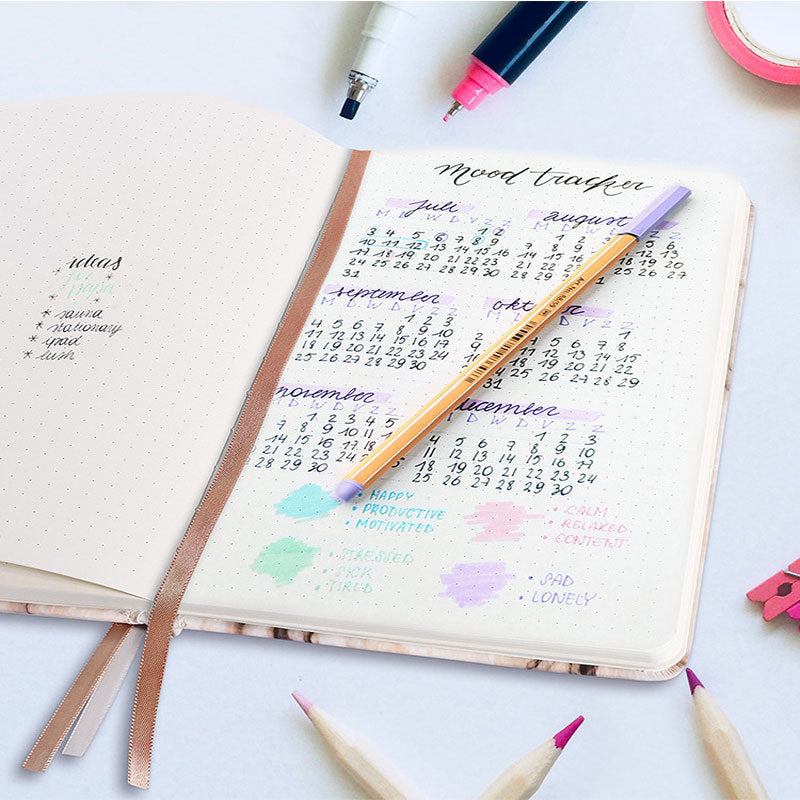 ideas
for
papa
* sauna
* stationary
* ipad
* lush
mood tracker
juli
M D W D V Z Z
1 2
3 4 5 6 7 8 9
10 11 12 13 14 15 16
17 18 19 20 21 22 23
24 25 26 27 28 29 30
31
august
1 2
7 8 9
14 15 16 17 18 19 20
21 22 23 24 25 26 27
28 29
september
M D W D V Z Z
1 2 3
4 5 6 7 8 9 10
11 12 13 14 15 16 17
18 19 20 21 22 23 24
25 26 27 28 29 30
D V Z Z
1
2 5 6 7 8
9 12 13 14 15
16 18 19 20 21 22
23 25 26 27 28 29
31
november
D W D V Z Z
1 2 3 4
7 8 9 10 11
14 15 16 17 18
21 22 23 24
28 29 30
december
W D V Z Z
1 2 3
4 5 6 7 8 9 10
11 12 13 14 15 16 17
18 19 20 21 22 23 24
25 26 27 28 29 30
• HAPPY
• PRODUCTIVE
• MOTIVATED
• CALM
• RELAXED
• CONTENT
• STRESSED
• SICK
• TIRED
• SAD
• LONELY